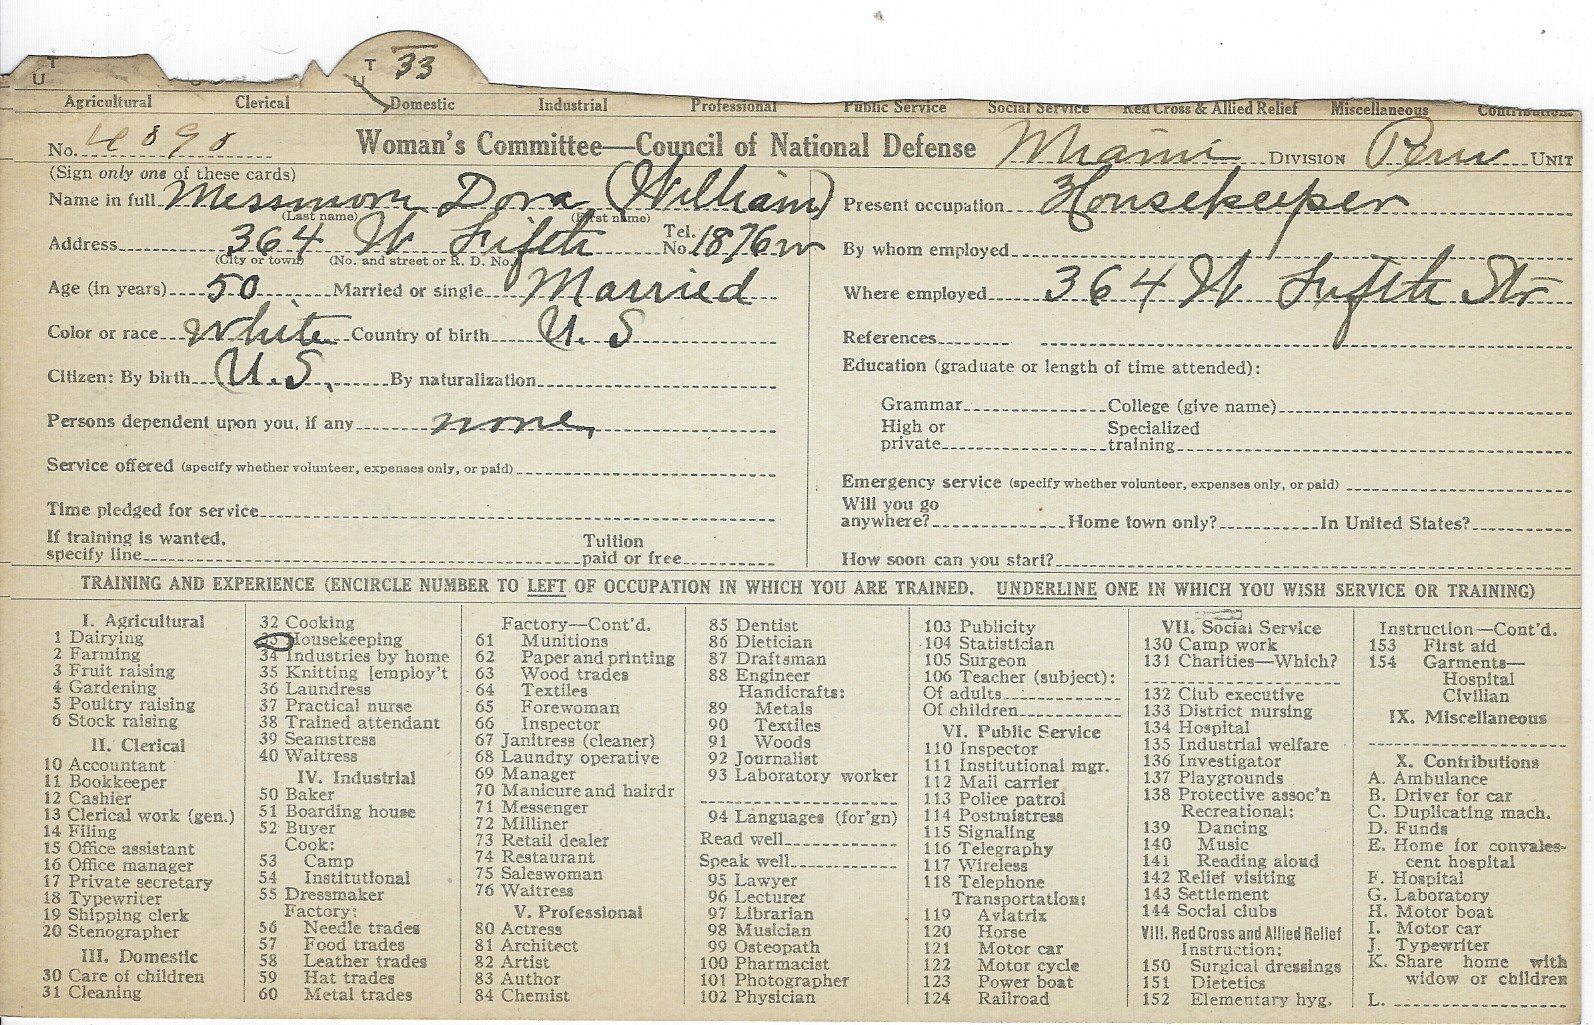 T
U
T 33
U
Agricultural Clerical Domestic Industrial Professional Public Service Social Service Red Cross & Allied Relief Miscellaneous Contributions
No. 4898 Woman's Committee—Council of National Defense Miami DIVISION Peru UNIT
(Sign only one of these cards)
Name in full Messmore Dora (William)
(Last name) (First name)
Address 364 W Fifth Tel. No. 1876w
(City or town) (No. and street or R. D. No.)
Age (in years) 50 Married or single Married
Color or race White Country of birth U. S
Citizen: By birth U.S. By naturalization
Persons dependent upon you, if any none
Service offered (specify whether volunteer, expenses only, or paid)
Time pledged for service
If training is wanted, specify line Tuition paid or free
Present occupation Housekeeper
By whom employed
Where employed 364 W Fifth Str
References
Education (graduate or length of time attended):
Grammar College (give name)
High or private Specialized training
Emergency service (specify whether volunteer, expenses only, or paid)
Will you go anywhere? Home town only? In United States?
How soon can you start?
TRAINING AND EXPERIENCE (ENCIRCLE NUMBER TO LEFT OF OCCUPATION IN WHICH YOU ARE TRAINED. UNDERLINE ONE IN WHICH YOU WISH SERVICE OR TRAINING)
I. Agricultural
1 Dairying
2 Farming
3 Fruit raising
4 Gardening
5 Poultry raising
6 Stock raising
II. Clerical
10 Accountant
11 Bookkeeper
12 Cashier
13 Clerical work (gen.)
14 Filing
15 Office assistant
16 Office manager
17 Private secretary
18 Typewriter
19 Shipping clerk
20 Stenographer
III. Domestic
30 Care of children
31 Cleaning
32 Cooking
33 Housekeeping
34 Industries by home
35 Knitting [employ't
36 Laundress
37 Practical nurse
38 Trained attendant
39 Seamstress
40 Waitress
IV. Industrial
50 Baker
51 Boarding house
52 Buyer
Cook:
53 Camp
54 Institutional
55 Dressmaker
Factory:
56 Needle trades
57 Food trades
58 Leather trades
59 Hat trades
60 Metal trades
Factory—Cont'd.
61 Munitions
62 Paper and printing
63 Wood trades
64 Textiles
65 Forewoman
66 Inspector
67 Janitress (cleaner)
68 Laundry operative
69 Manager
70 Manicure and hairdr
71 Messenger
72 Milliner
73 Retail dealer
74 Restaurant
75 Saleswoman
76 Waitress
V. Professional
80 Actress
81 Architect
82 Artist
83 Author
84 Chemist
85 Dentist
86 Dietician
87 Draftsman
88 Engineer
Handicrafts:
89 Metals
90 Textiles
91 Woods
92 Journalist
93 Laboratory worker
94 Languages (for'gn)
Read well
Speak well
95 Lawyer
96 Lecturer
97 Librarian
98 Musician
99 Osteopath
100 Pharmacist
101 Photographer
102 Physician
103 Publicity
104 Statistician
105 Surgeon
106 Teacher (subject):
Of adults
Of children
VI. Public Service
110 Inspector
111 Institutional mgr.
112 Mail carrier
113 Police patrol
114 Postmistress
115 Signaling
116 Telegraphy
117 Wireless
118 Telephone
Transportation:
119 Aviatrix
120 Horse
121 Motor car
122 Motor cycle
123 Power boat
124 Railroad
VII. Social Service
130 Camp work
131 Charities—Which?
132 Club executive
133 District nursing
134 Hospital
135 Industrial welfare
136 Investigator
137 Playgrounds
138 Protective assoc'n
Recreational:
139 Dancing
140 Music
141 Reading aloud
142 Relief visiting
143 Settlement
144 Social clubs
VIII. Red Cross and Allied Relief
Instruction:
150 Surgical dressings
151 Dietetics
152 Elementary hyg.
Instruction—Cont'd.
153 First aid
154 Garments—
Hospital
Civilian
IX. Miscellaneous
X. Contributions
A. Ambulance
B. Driver for car
C. Duplicating mach.
D. Funds
E. Home for convales-
cent hospital
F. Hospital
G. Laboratory
H. Motor boat
I. Motor car
J. Typewriter
K. Share home with
widow or children
L.